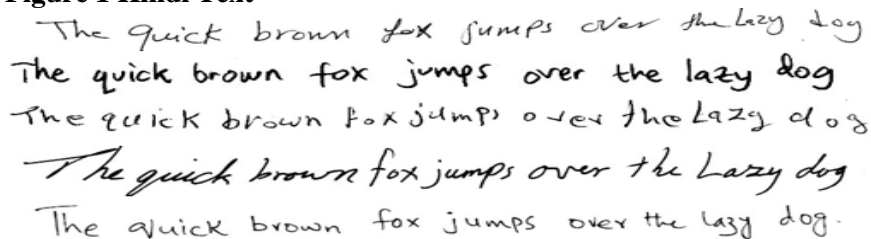 The quick brown fox jumps over the Lazy dog
The quick brown fox jumps over the lazy dog
The quick brown fox jumps over the Lazy dog
The quick brown fox jumps over the Lazy dog
The quick brown fox jumps over the lazy dog.